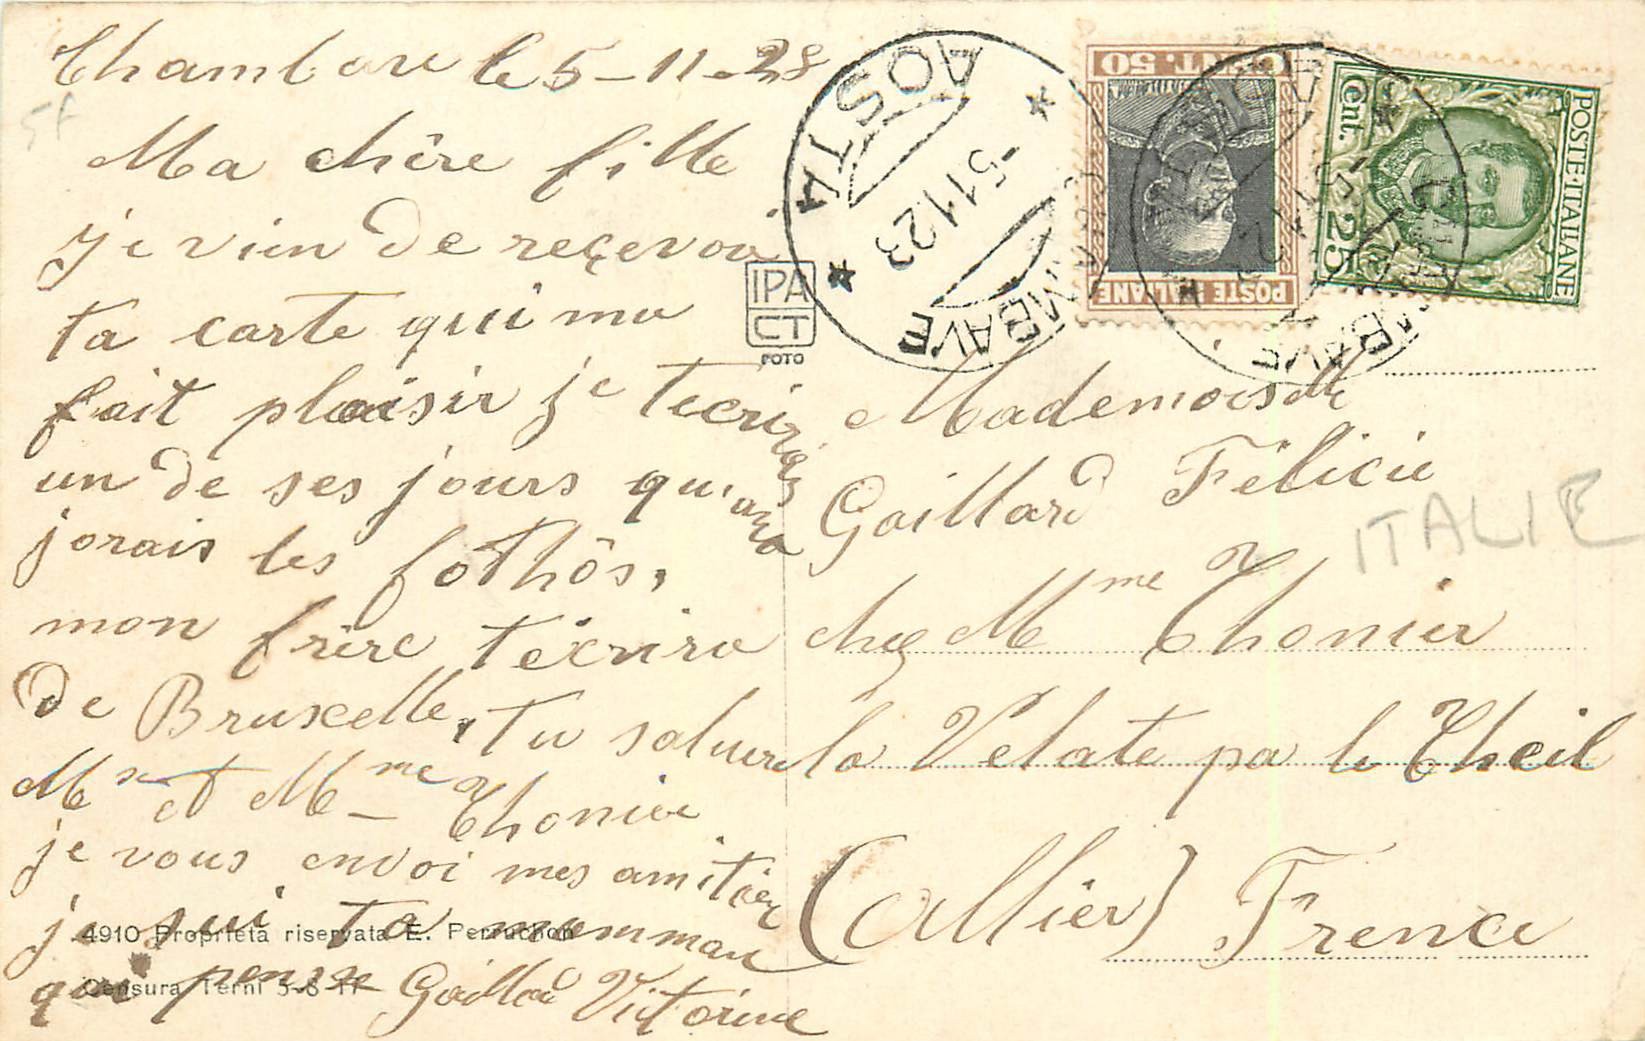 Chambave le 5-11-23
5f
Ma chère fille
je vien de reçevoir
ta carte qui ma
fait plaisir je tecrirais
un de ses jours qu'ant
jorais les fothôs,
mon frère técrira
de Bruxelle, tu saluera
Mr et Mme Thonier
je vous envoi mes amitier
je sui ta mamman
qui pense Gaillard Victorine
4910 Proprietà riservata E. Perruchon
Censura Terni 5-8-17
IPA
CT
FOTO
AOSTA
-5 11 23
MBAVE
CENT. 50
POSTE ITALIANE
POSTE·ITALIANE
Cent. 25
MBAVE
Mademoiselle
Gaillard Félicie
ITALIE
chez Mme Thonier
la Vélate pa le Theil
(Allier) Frence